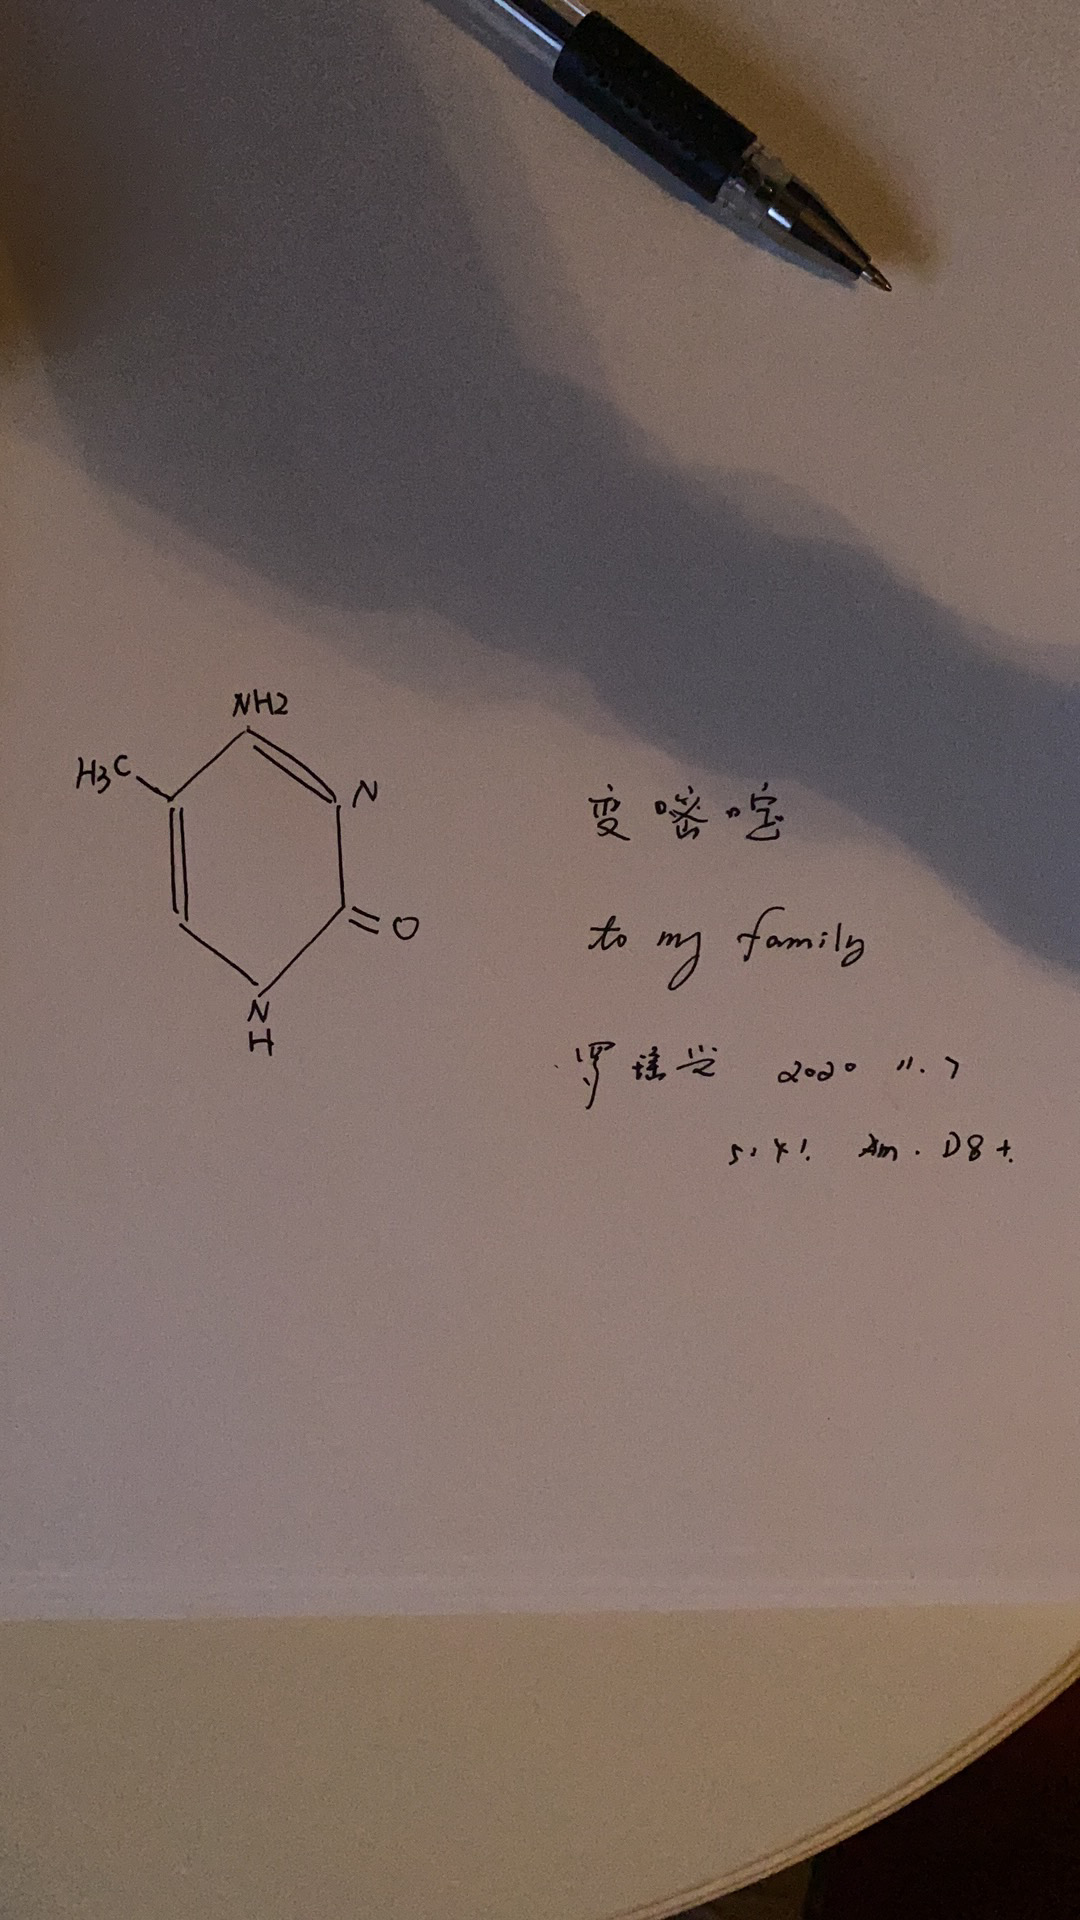 NH2
H3C
N
O
N
H
变嘧啶
to my family
罗瑶光 2020 11.7
5:41. Am. D8+.